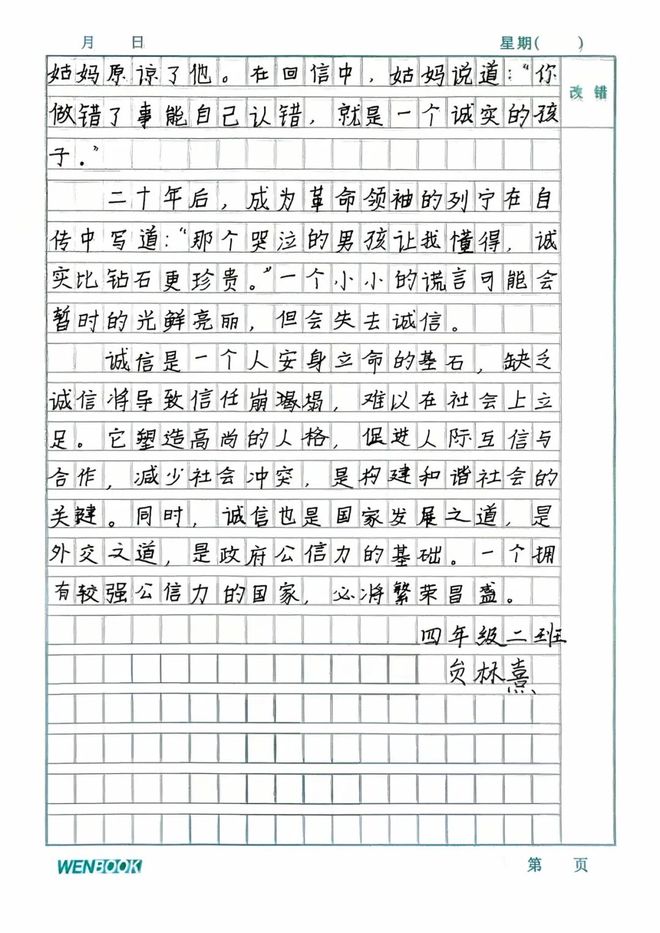 月 日 星期( )
姑妈原谅了他。在回信中，姑妈说道：“你
改错
做错了事能自己认错，就是一个诚实的孩
子。”
二十年后，成为革命领袖的列宁在自
传中写道：“那个哭泣的男孩让我懂得，诚
实比钻石更珍贵。”一个小小的谎言可能会
暂时的光鲜亮丽，但会失去诚信。
诚信是一个人安身立命的基石，缺乏
诚信将导致信任崩塌塌，难以在社会上立
足。它塑造高尚的人格，促进人际互信与
合作，减少社会冲突，是构建和谐社会的
关键。同时，诚信也是国家发展之道，是
外交之道，是政府公信力的基础。一个拥
有较强公信力的国家，必将繁荣昌盛。
四年级二班
贠林熹
WENBOOK 第 页